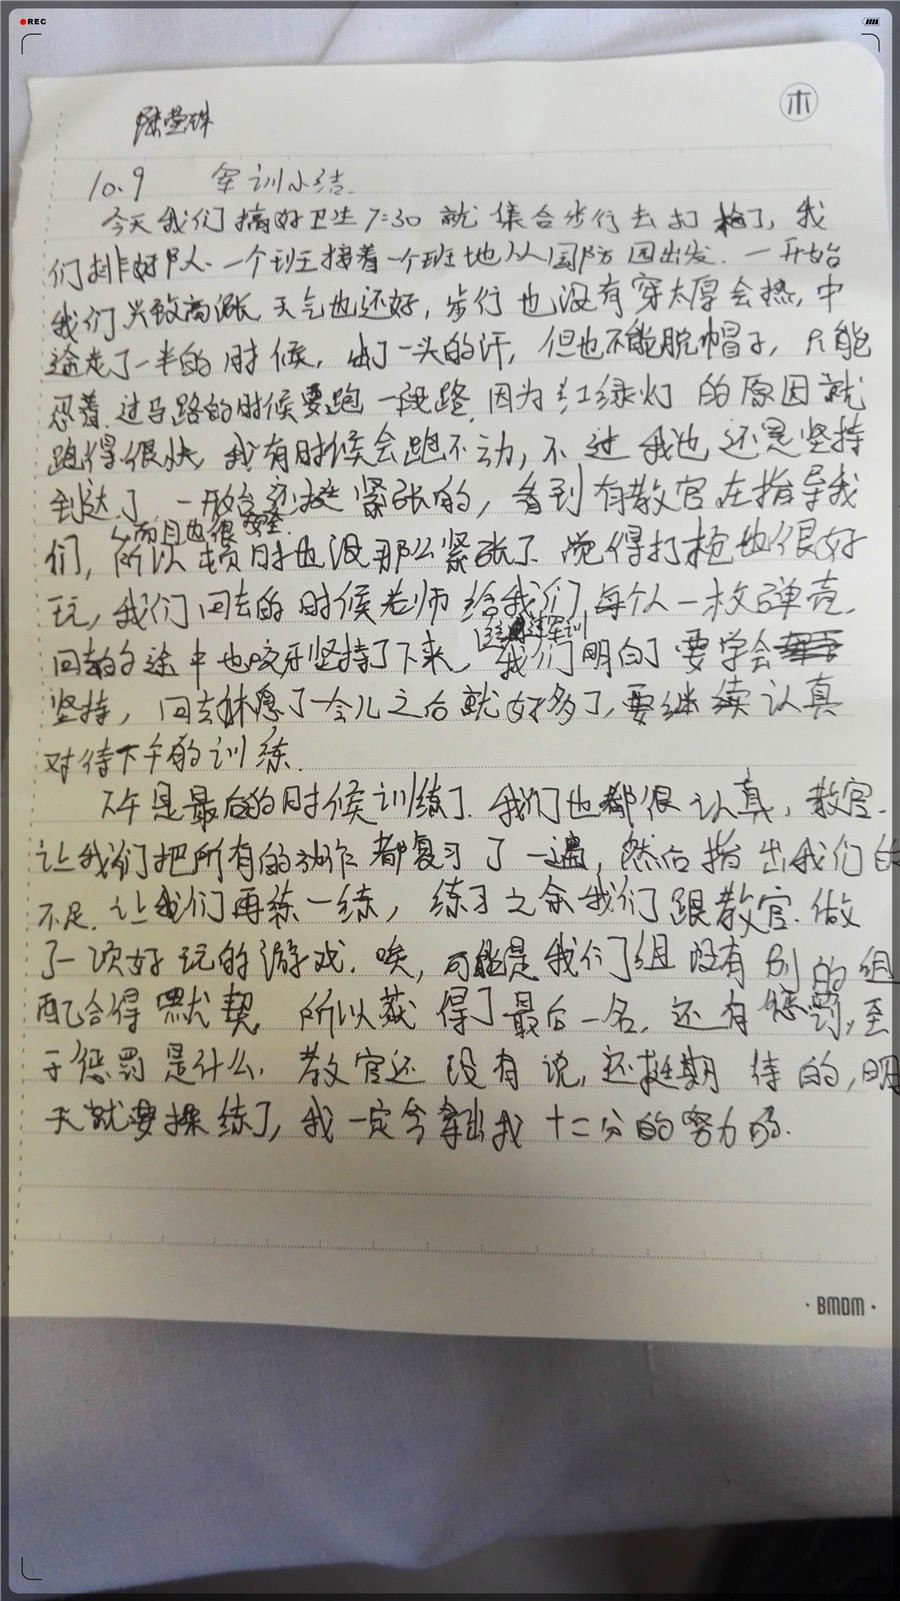 REC
木
陈莹姝
10.9 军训小结.
今天我们搞好卫生7:30就集合步行去打枪了,我
们排好队.一个班接着一个班地从国防园出发.一开始
我们兴致高涨,天气也还好,步行也没有穿太厚会热,中
途走了一半的时候,出了一头的汗,但也不能脱帽子,只能
忍着.过马路的时候要跑一段路,因为红绿灯的原因就
跑得很快,我有时候会跑不动,不过我也还是坚持
到达了.一开始还挺紧张的,看到有教官在指导我
而且也很安全.
们,所以顿时也没那么紧张了.觉得打枪也很好
玩,我们回去的时候老师给我们每个人一枚弹壳.
这次军训
回去的途中也咬牙坚持了下来,我们明白了要学会
坚持,回去休息了一会儿之后就好多了,要继续认真
对待下午的训练.
下午是最后的时候训练了.我们也都很认真,教官
让我们把所有的动作都复习了一遍,然后指出我们的
不足.让我们再练一练,练习之余我们跟教官做
了一次好玩的游戏.唉,可能是我们组没有别的组
配合得默契,所以获得了最后一名.还有惩罚,至
于惩罚是什么.教官还没有说,还挺期待的,明
天就要操练了,我一定会拿出我十二分的努力的.
·BMDM·